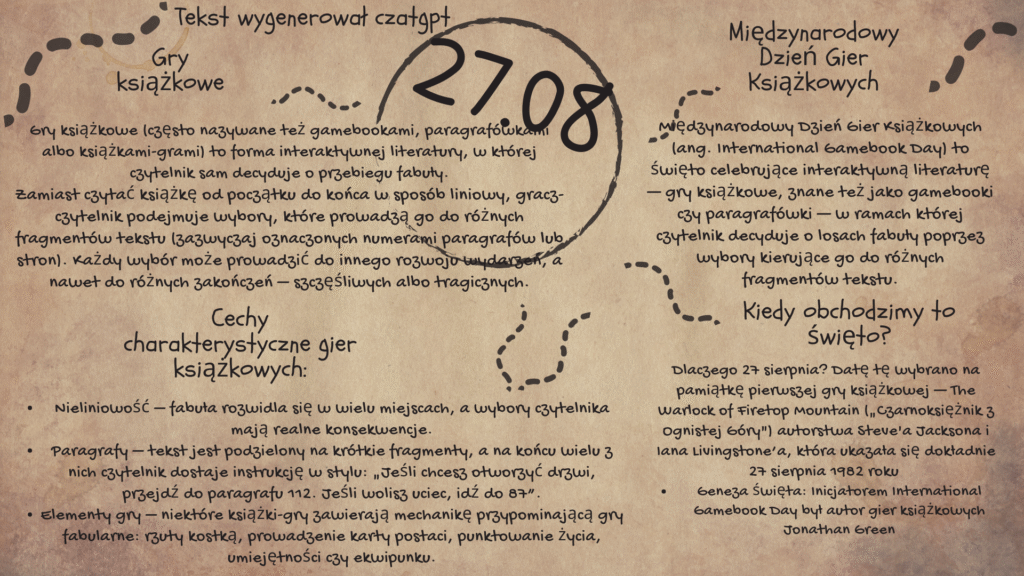 Tekst wygenerował czatgpt
Gry
książkowe
27.08
Gry książkowe (często nazywane też gamebookami, paragrafówkami
albo książkami-grami) to forma interaktywnej literatury, w której
czytelnik sam decyduje o przebiegu fabuły.
Zamiast czytać książkę od początku do końca w sposób liniowy, gracz-
czytelnik podejmuje wybory, które prowadzą go do różnych
fragmentów tekstu (zazwyczaj oznaczonych numerami paragrafów lub
stron). Każdy wybór może prowadzić do innego rozwoju wydarzeń, a
nawet do różnych zakończeń — szczęśliwych albo tragicznych.
Cechy
charakterystyczne gier
książkowych:
• Nieliniowość — fabuła rozwidla się w wielu miejscach, a wybory czytelnika
mają realne konsekwencje.
• Paragrafy — tekst jest podzielony na krótkie fragmenty, a na końcu wielu z
nich czytelnik dostaje instrukcję w stylu: „Jeśli chcesz otworzyć drzwi,
przejdź do paragrafu 112. Jeśli wolisz uciec, idź do 87”.
• Elementy gry — niektóre książki-gry zawierają mechanikę przypominającą gry
fabularne: rzuty kostką, prowadzenie karty postaci, punktowanie życia,
umiejętności czy ekwipunku.
Międzynarodowy
Dzień Gier
Książkowych
Międzynarodowy Dzień Gier Książkowych
(ang. International Gamebook Day) to
święto celebrujące interaktywną literaturę
— gry książkowe, znane też jako gamebooki
czy paragrafówki — w ramach której
czytelnik decyduje o losach fabuły poprzez
wybory kierujące go do różnych
fragmentów tekstu.
Kiedy obchodzimy to
święto?
Dlaczego 27 sierpnia? Datę tę wybrano na
pamiątkę pierwszej gry książkowej — The
Warlock of Firetop Mountain („Czarnoksiężnik z
Ognistej Góry") autorstwa Steve'a Jacksona i
Iana Livingstone’a, która ukazała się dokładnie
27 sierpnia 1982 roku
• Geneza święta: Inicjatorem International
Gamebook Day był autor gier książkowych
Jonathan Green